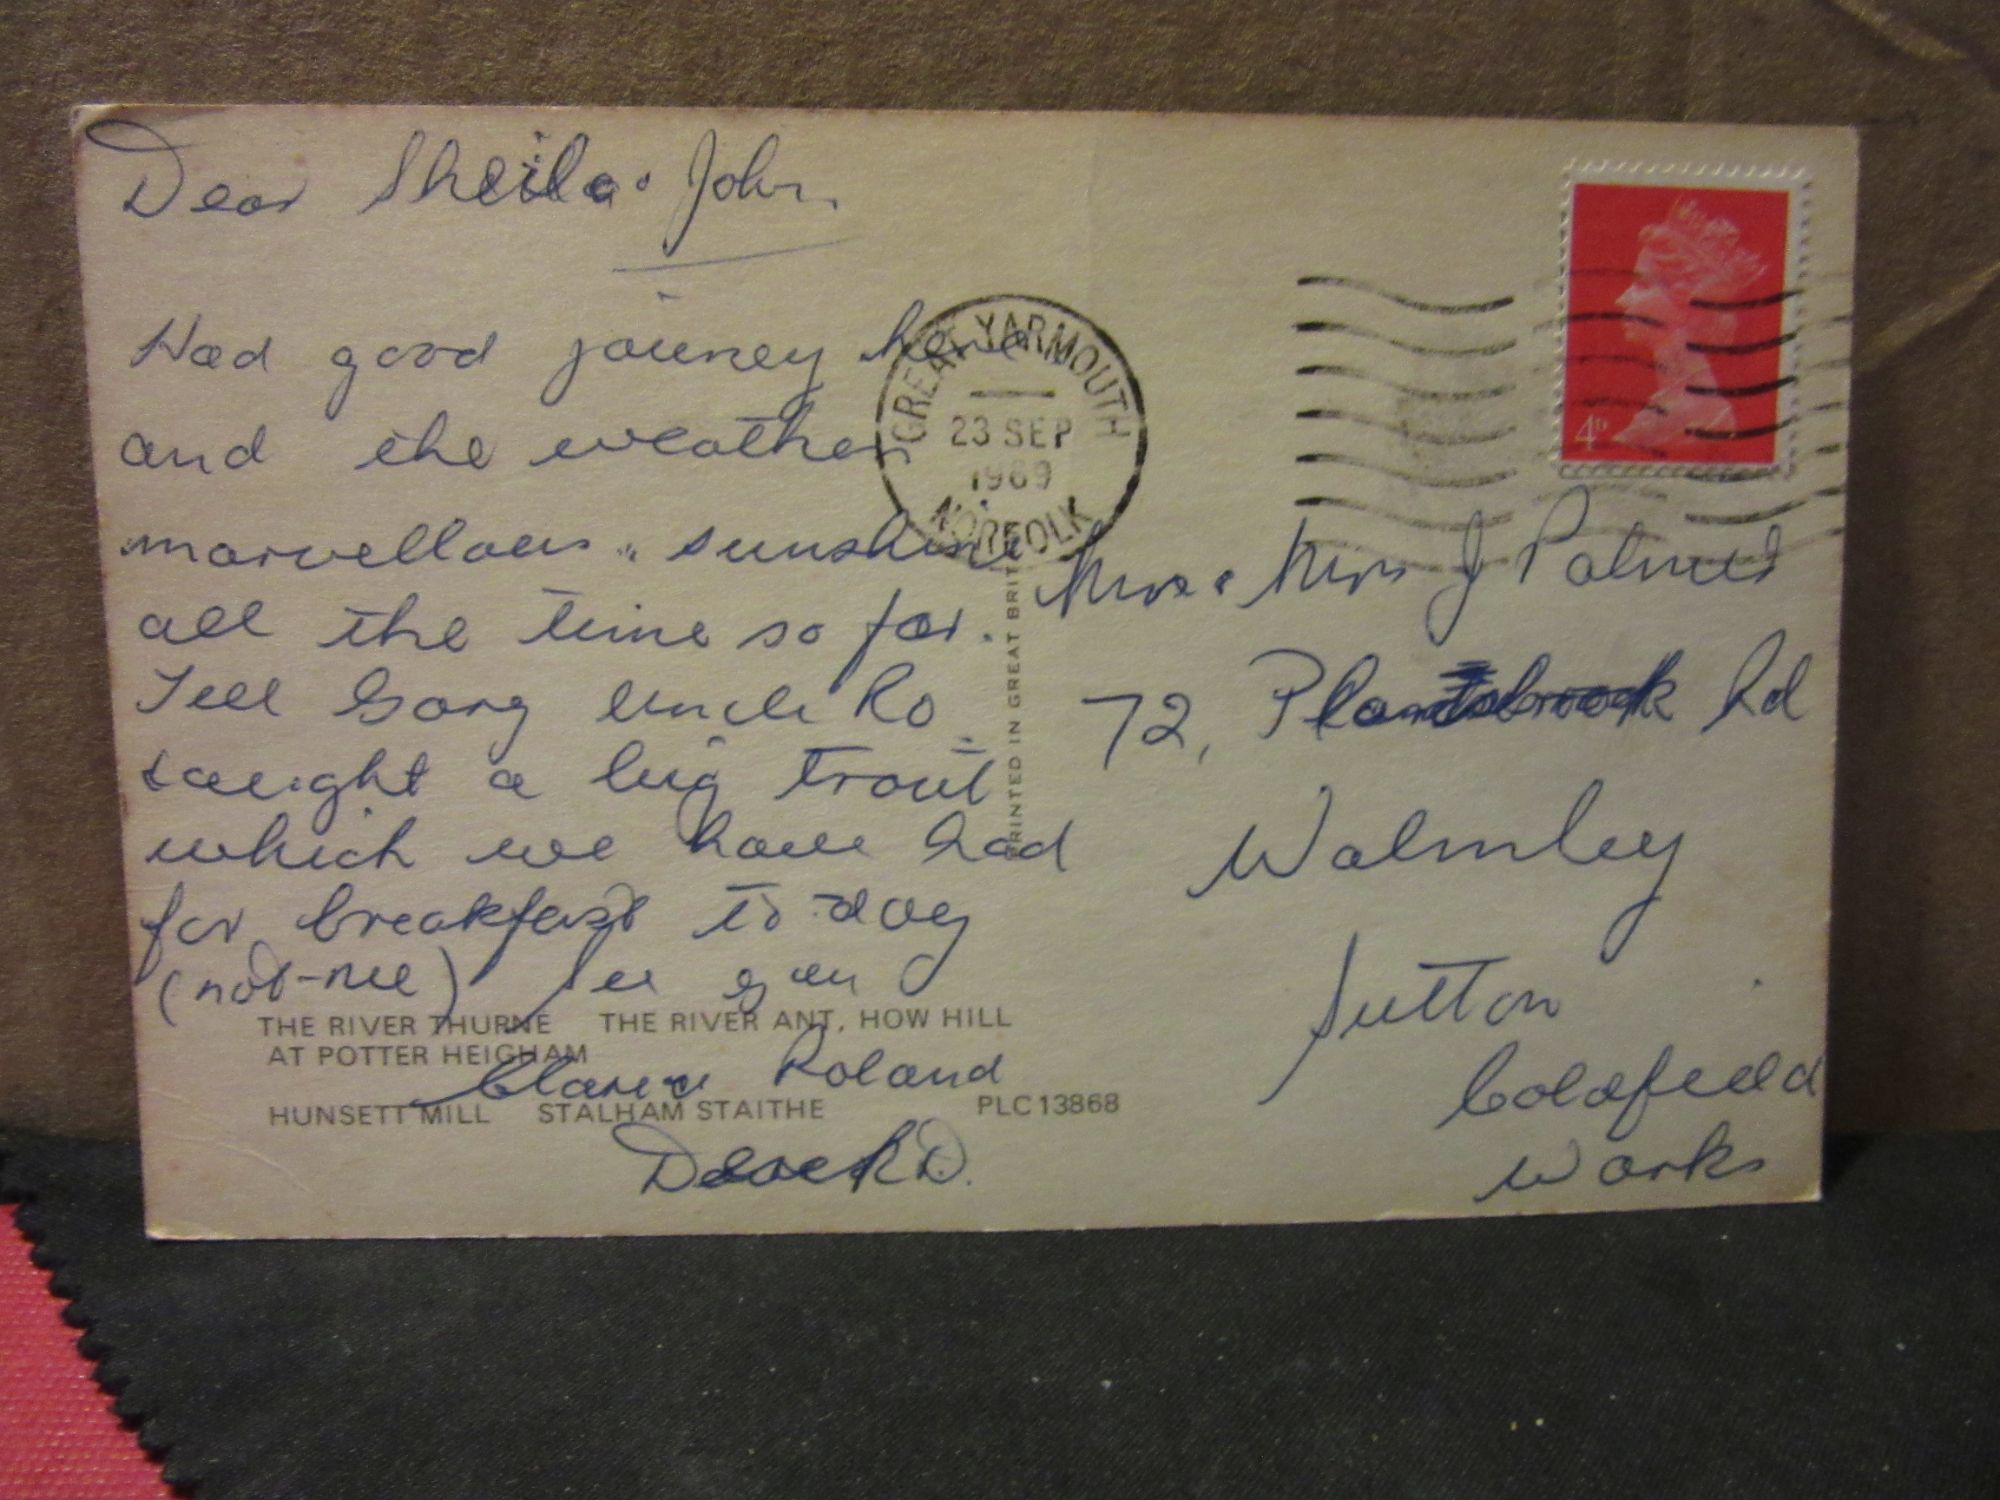 Dear Sheila & John,
Had good journey here
and the weather
marvellous, sunshine
all the time so far.
Tell Gary Uncle Ro
caught a big trout
which we have had
for breakfast to-day
(not-me) See you
Roland
Derek D.
THE RIVER THURNE THE RIVER ANT, HOW HILL
AT POTTER HEIGHAM
HUNSETT MILL STALHAM STAITHE PLC13868
PRINTED IN GREAT BRIT
GREAT YARMOUTH
23 SEP
1969
NORFOLK
4D
& Mrs J Palmer
72, Plantsbrook Rd
Walmley
Sutton
Coldfield
Warks